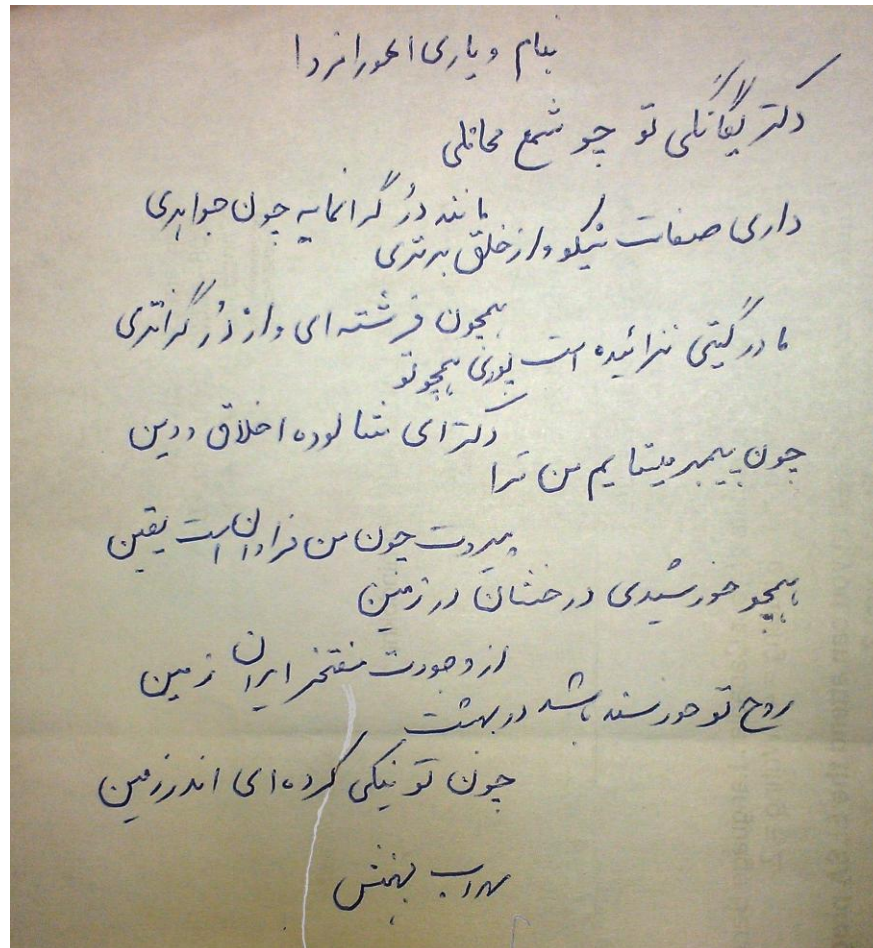 بنام و یاری اهورامزدا
دکتر یگانگی تو چو شمع محافلی
مانند دُر گرانمایه چون جواهری
داری صفات نیکو و از خلق برتری
همچون فرشته ای و از دُر گرانتری
مادر گیتی نزائیده است پوری همچو تو
دکتر ای شالوده اخلاق و دین
چون پیمبر میستایم من ترا
پیروت چون من فراوان است یقین
همچو خورشیدی درخشان در زمین
از وجودت مفتخر ایران زمین
روح تو خورسند باشد در بهشت
چون تو نیکی کرده ای اندر زمین
سهراب